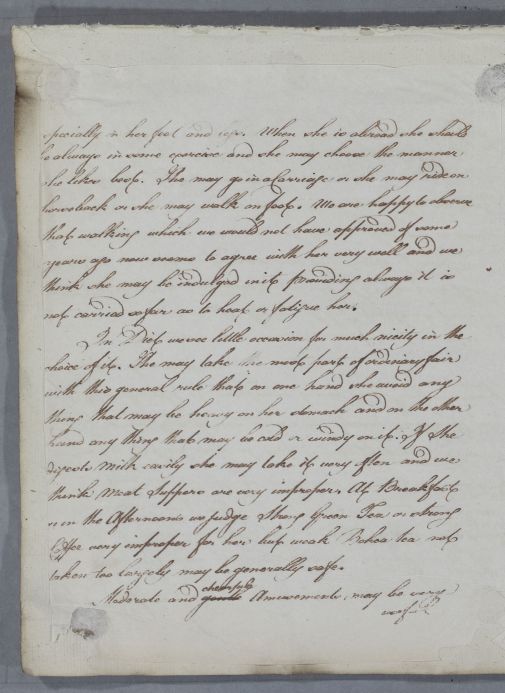 specially in her feet and legs. When she is abroad she should
be always in some exercise and she may choose the manner
she likes best. She may go in a Carriage or she may ride on
horseback or she may walk on foot. We are happy to observe
that walking which we would not have approved of some
years ago now seems to agree with her very well and we
think she may be indulged in it providing always it is
not carried so far as to heat or fatigue her.
In Diet we see little occasion for much nicity in the
choice of it. She may take the most part of ordinary fair
with this general rule that on one hand she avoid any
thing that may be heavy on her stomach and on the other
hand any thing that may be cold or windy on it. If She
digests Milk easily she may take it very often and we
think Meat Suppers are very improper. At Breakfast
or in the Afternoon we judge Strong Green Tea or strong
Coffee very improper for her but weak Bohea tea not
taken too largely may be generally safe.
Moderate and chearfull
gentle Amusements may be very
usefull